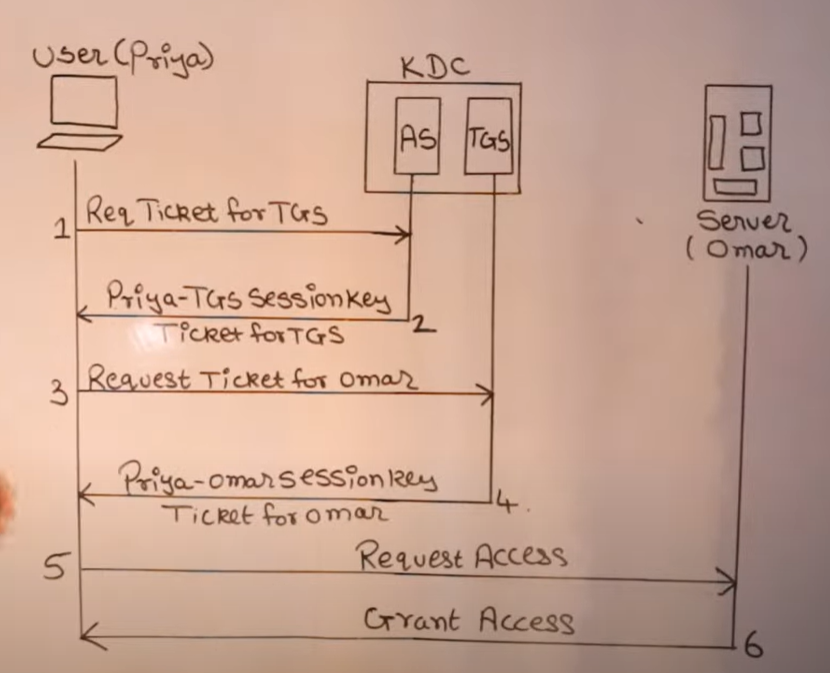 User (Priya)
KDC
AS
TGS
Server
(Omar)
1
Req Ticket for TGS
Priya-TGS Session Key
Ticket for TGS
2
3
Request Ticket for Omar
Priya-Omar Session key
Ticket for Omar
4.
5
Request Access
Grant Access
6